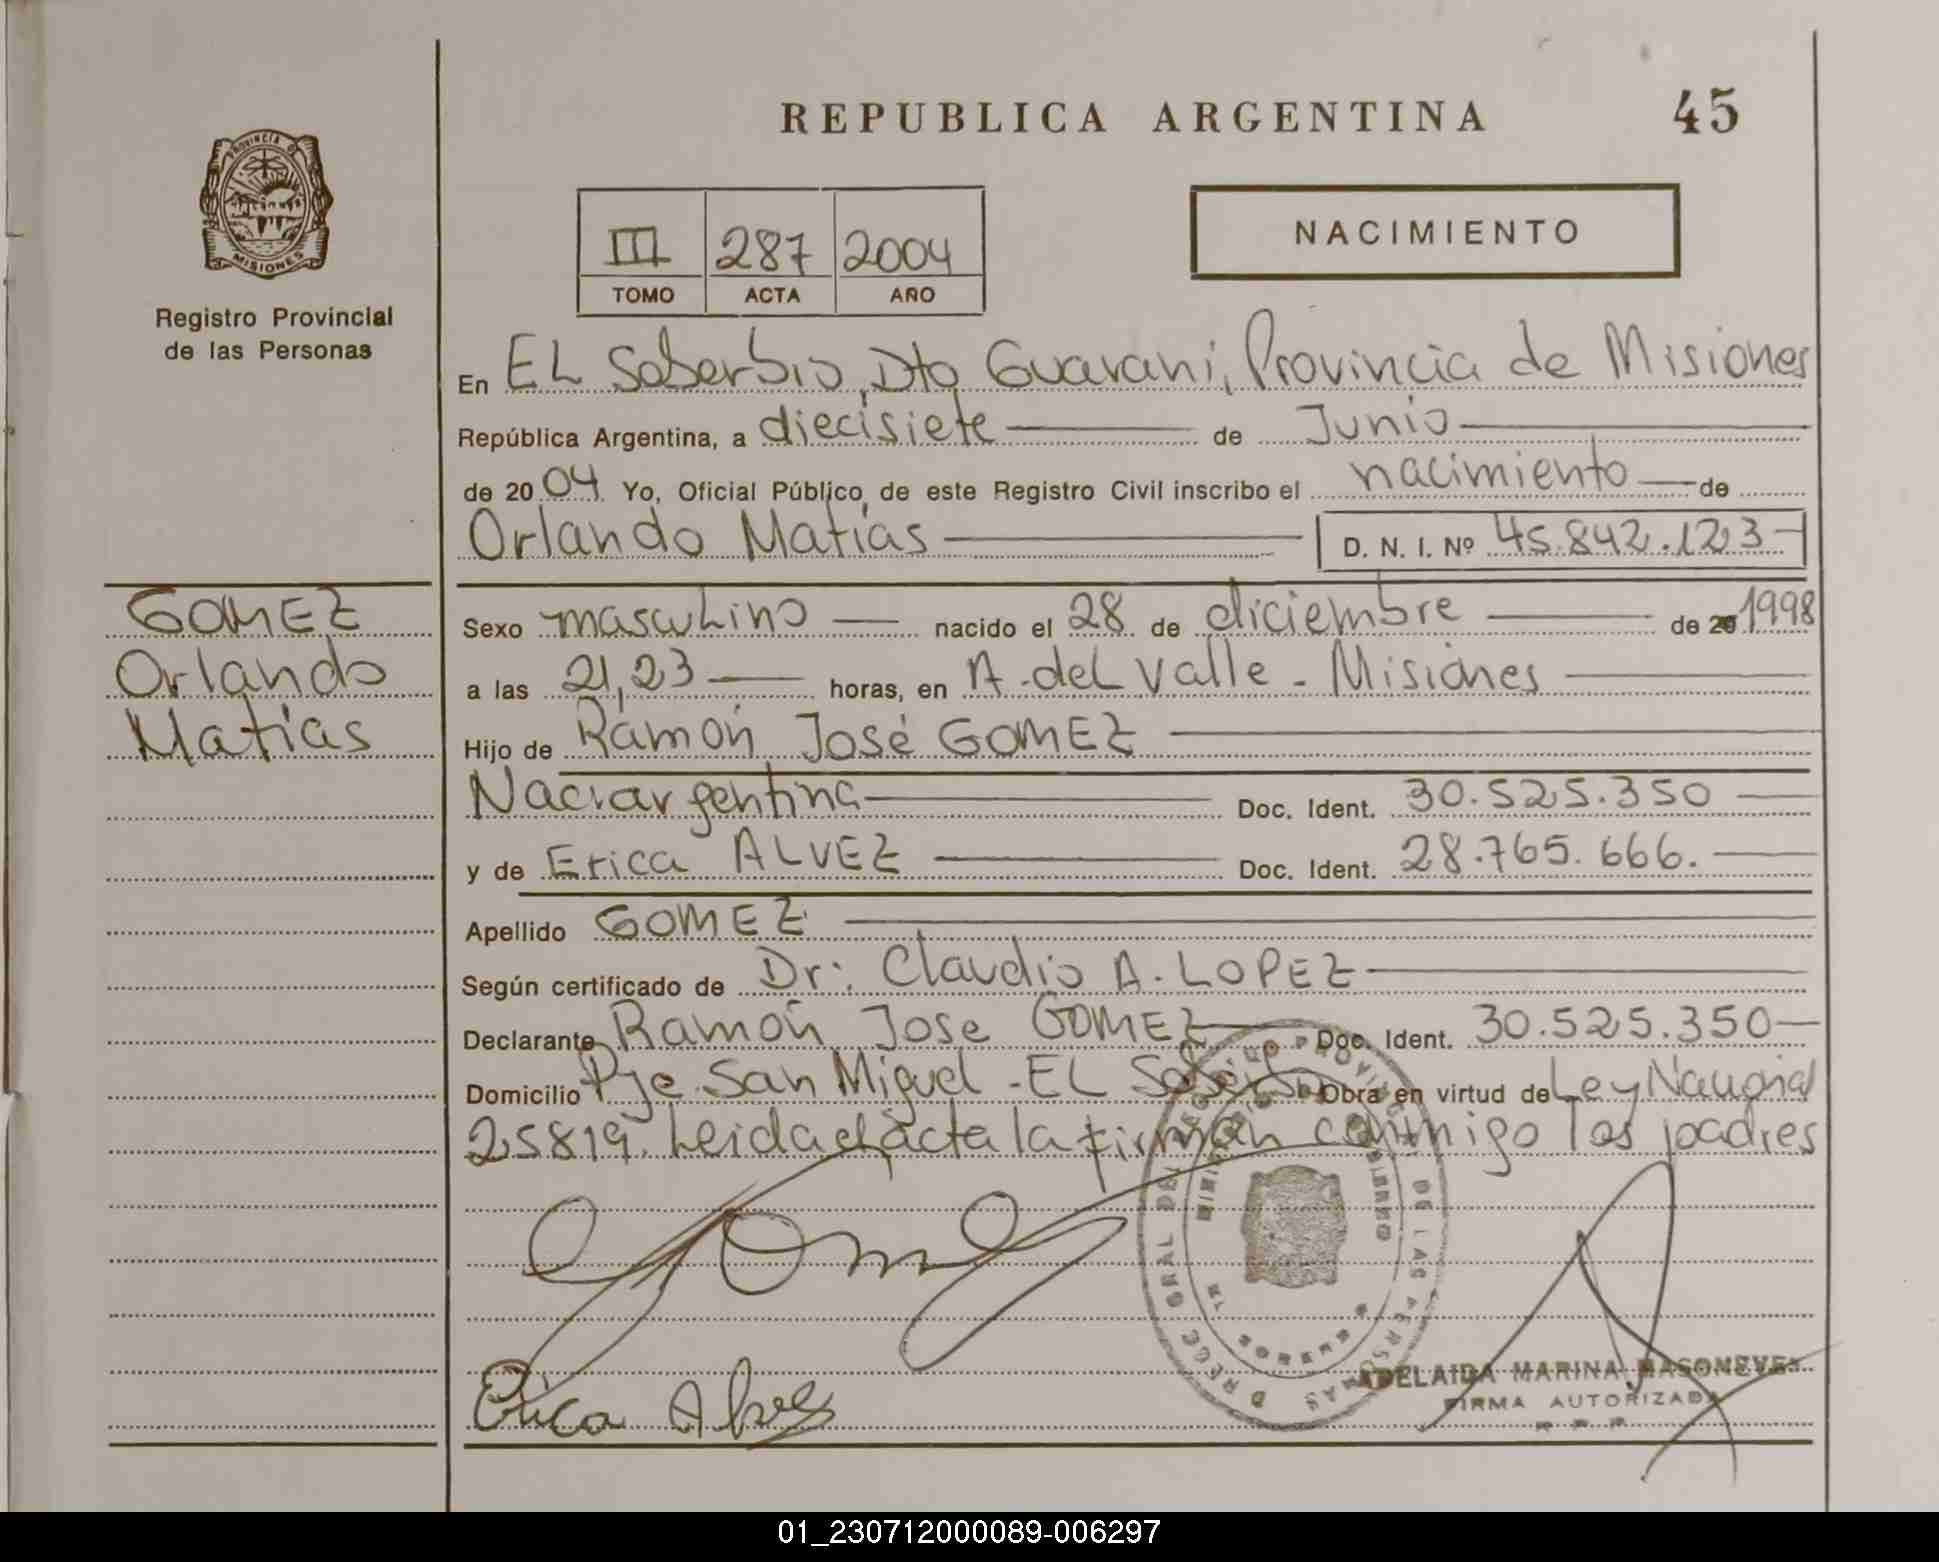 REPUBLICA ARGENTINA 45
PROVINCIA DE
MISIONES
Registro Provincial
de las Personas
III 287 2004
TOMO ACTA AÑO
NACIMIENTO
En EL Soberbio, Dto Guarani, Provincia de Misiones
República Argentina, a diecisiete de Junio
de 20 04 Yo, Oficial Público de este Registro Civil inscribo el nacimiento de
Orlando Matías D. N. I. Nº 45.842.123
GOMEZ
Orlando
Matías
Sexo masculino nacido el 28 de diciembre de 20 1998
a las 21,23 horas, en A. del Valle - Misiones
Hijo de Ramón José GOMEZ
Nac: argentina Doc. Ident. 30.525.350
y de Erica ALVEZ Doc. Ident. 28.765.666.
Apellido GOMEZ
Según certificado de Dr: Claudio A. LOPEZ
Declarante Ramón Jose GOMEZ Doc. Ident. 30.525.350
Domicilio Pje San Miguel - EL Soberbio Obra en virtud de Ley Nacional
25819. Leida el acta la firman conmigo los padres
Gomez
Erica Alves
ADELAIDA MARINA MASONEVES
FIRMA AUTORIZADA
01_230712000089-006297